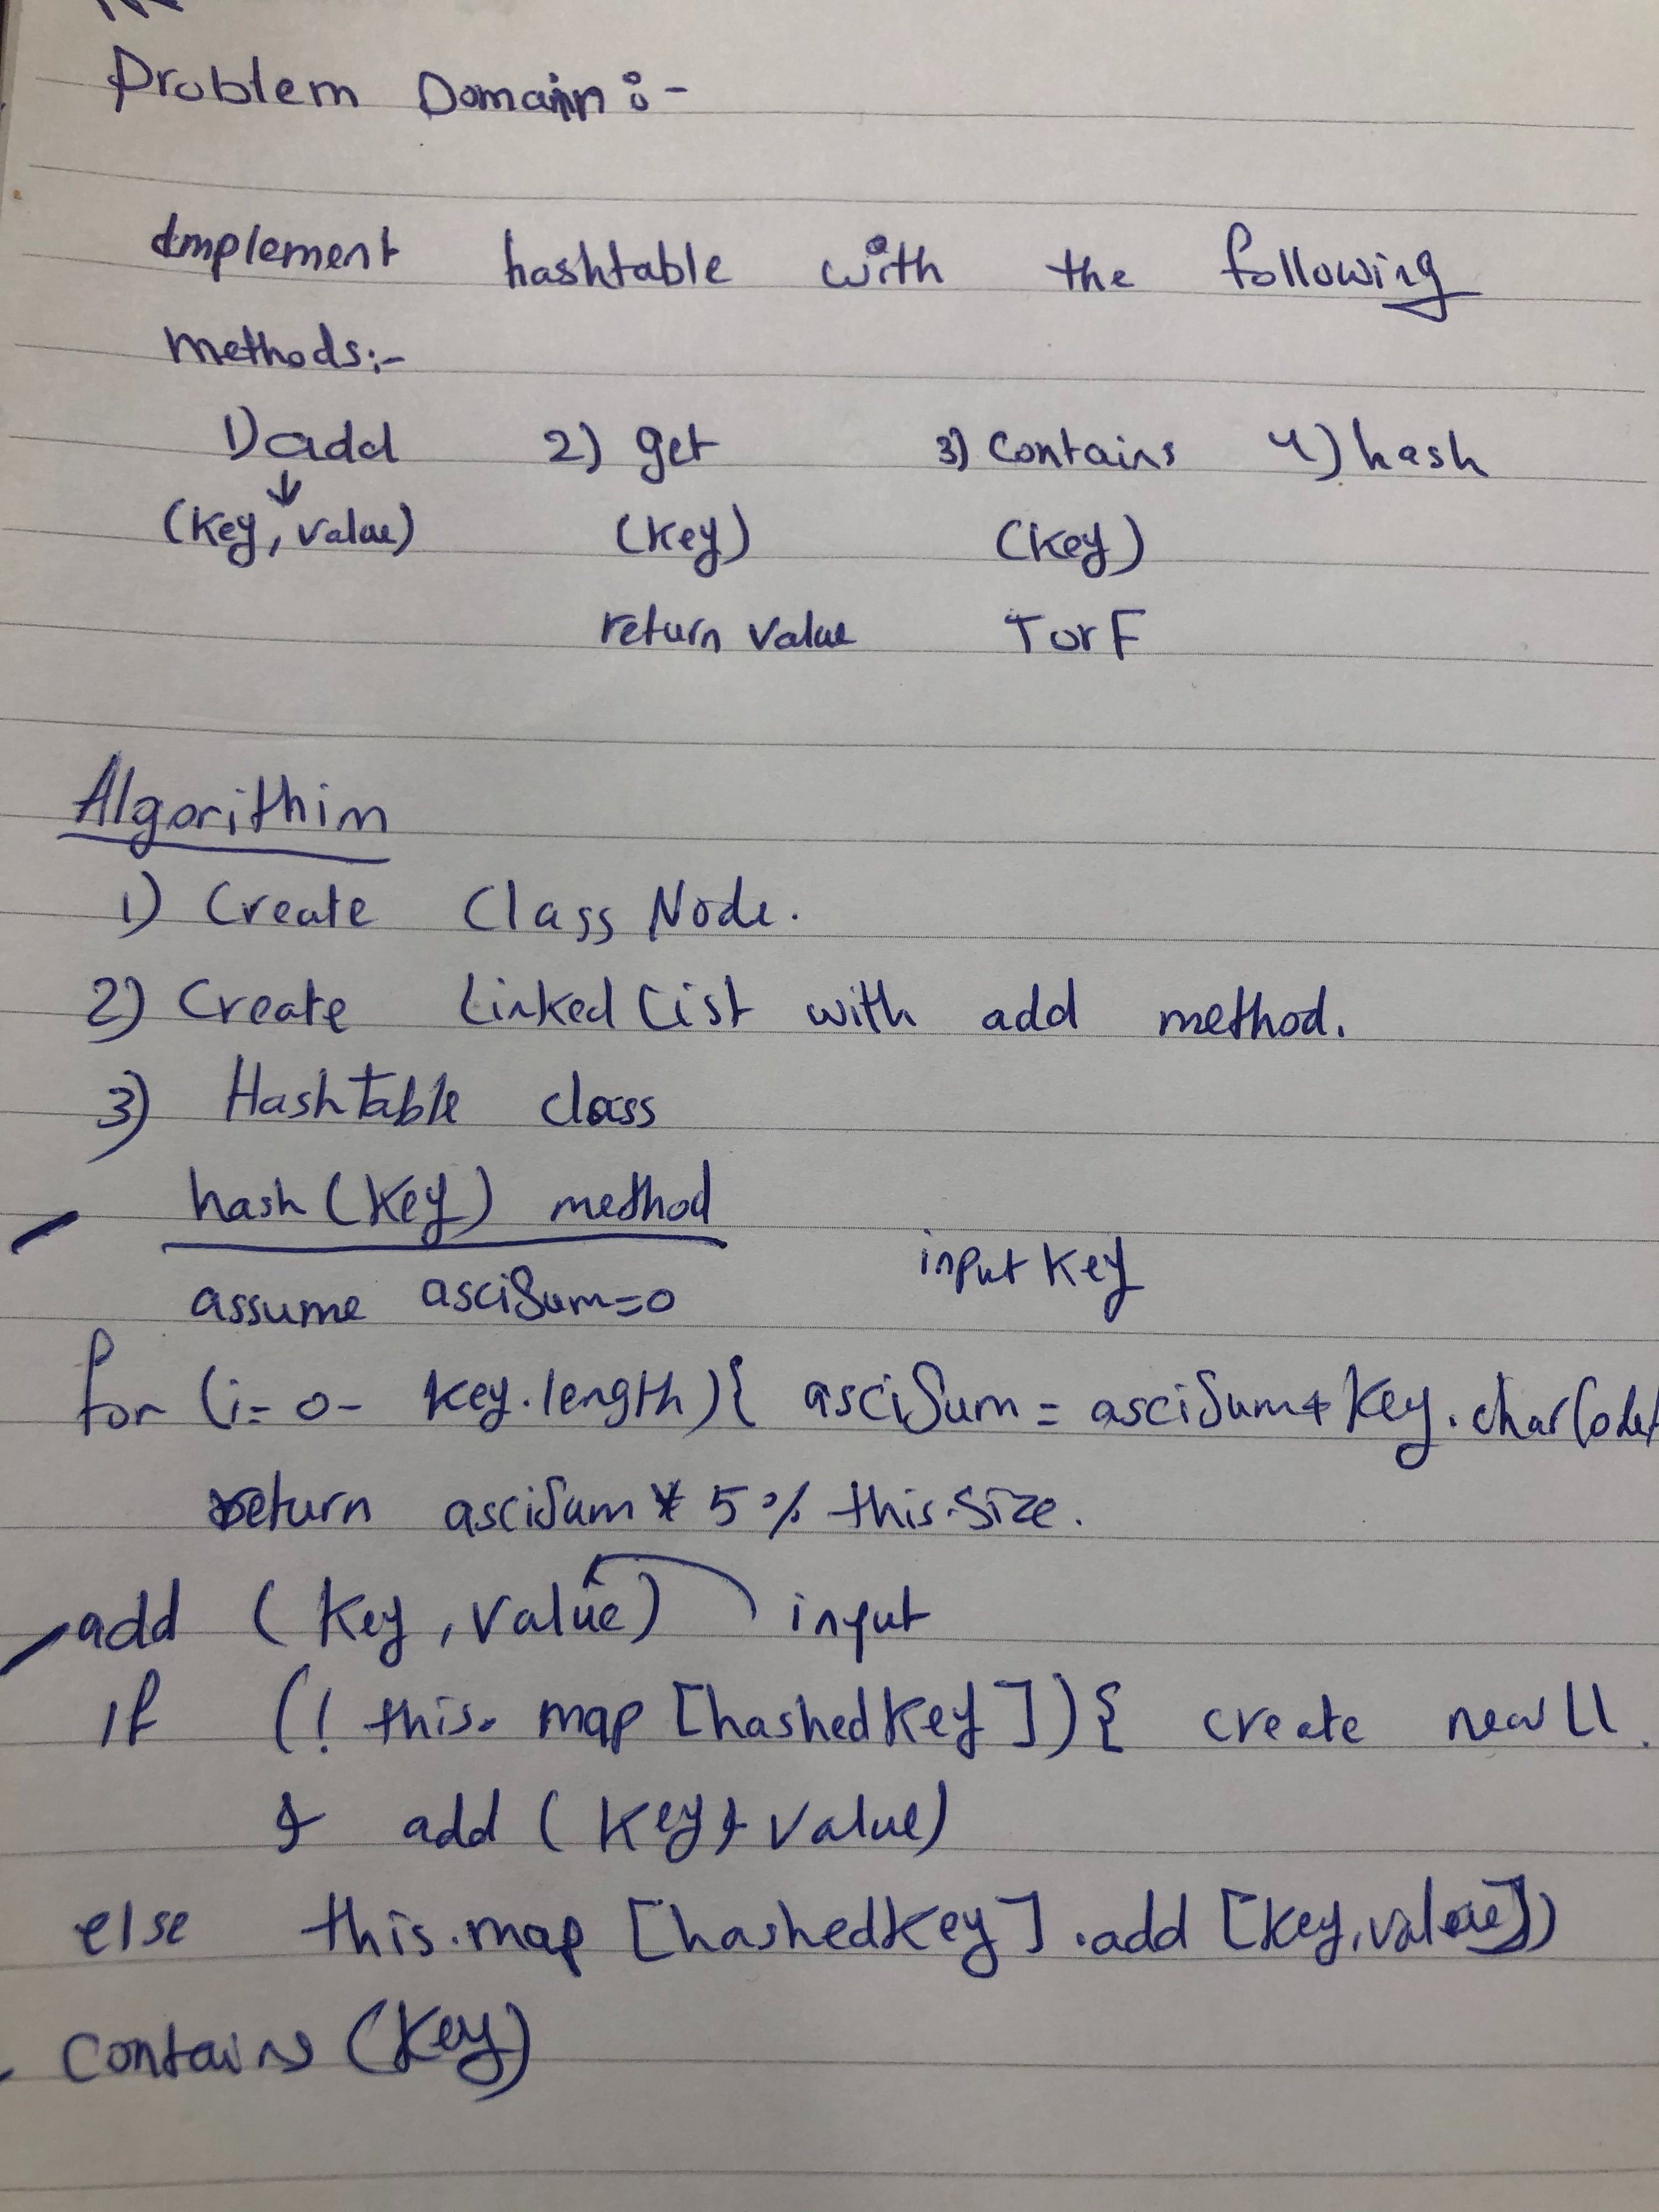 Problem Domain :-
Implement hashtable with the following
methods:-
1) add 2) get 3) Contains 4) hash
(Key, value) (key) (key)
return value T or F
Algorithim
1) Create Class Node.
2) Create Linked List with add method.
3) HashTable class
hash (Key) method
input Key
assume asciSum=0
for (i= 0- key.length){ asciSum = asciSum+ Key.charCodeA
return asciSum * 5 % this.size.
add (Key, value) input
if (! this. map [hashedKey]){ create new ll.
& add (Key & value)
else this.map [hashedKey].add [key,value])
Contains (Key)